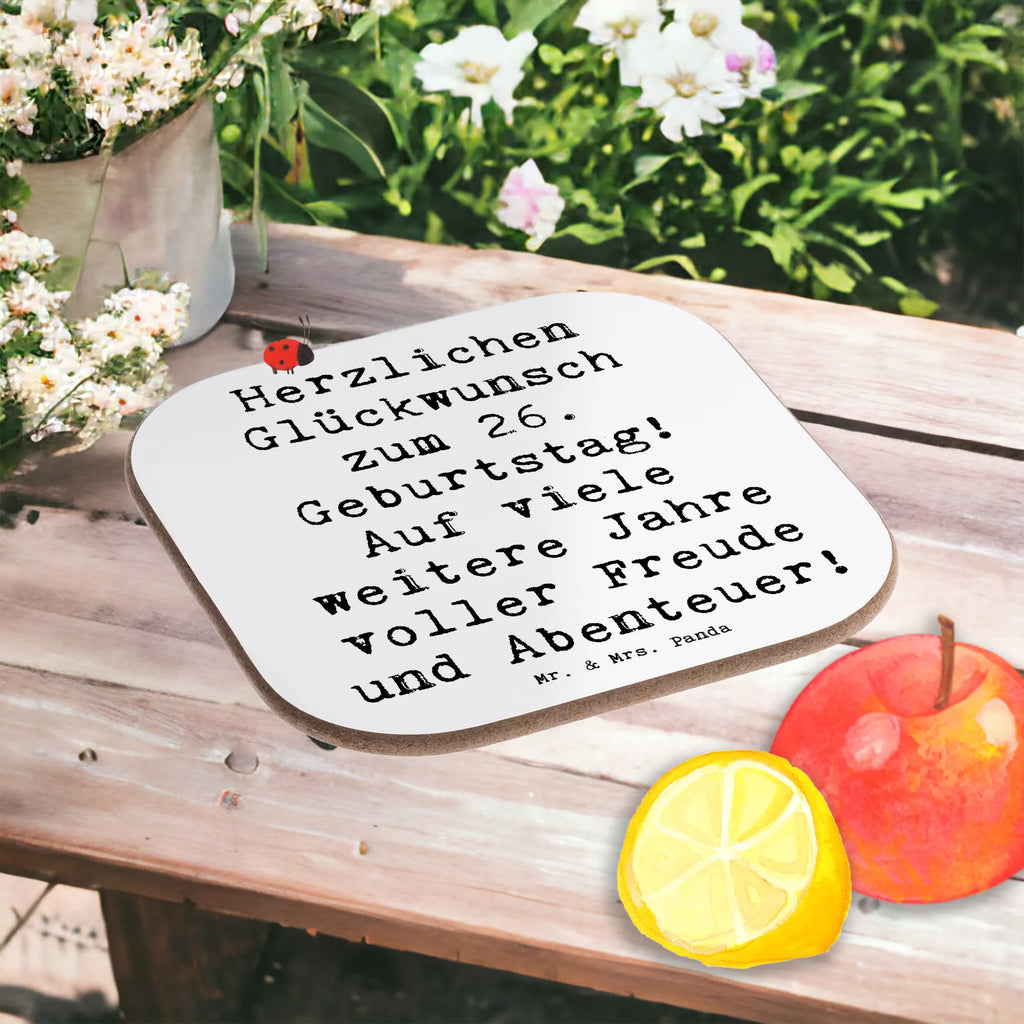 Herzlichen
Glückwunsch
zum 26.
Geburtstag!
Auf viele
weitere Jahre
voller Freude
und Abenteuer!
Mr. & Mrs. Panda